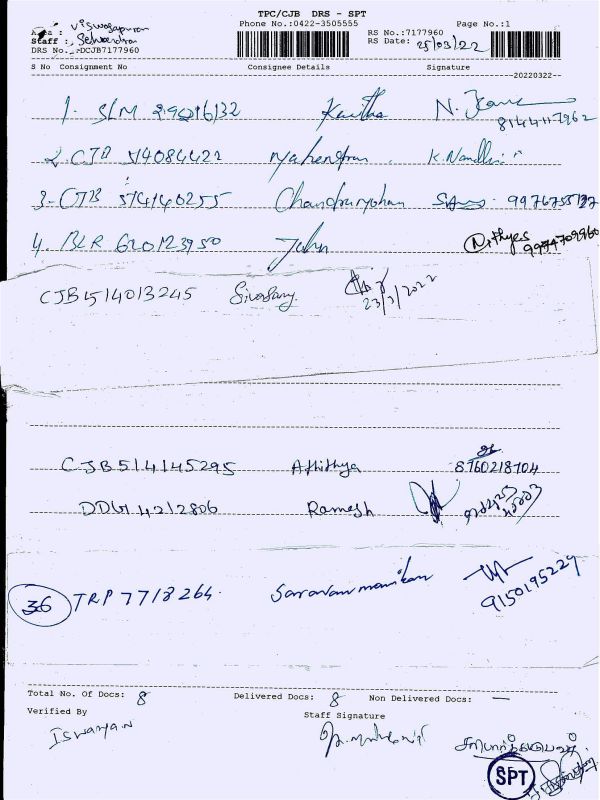 TPC/CJB DRS - SPT
Phone No.:0422-3505555 Page No.:1
Area : Viswasapuram
Staff :
DRS No.: DCJB7177960
RS No.:7177960
RS Date: 25/03/22
S No Consignment No Consignee Details Signature
20220322
1. SLM 29216132 Kavitha 8144117962
2. CJB 514084422 Mahendran K. Nandhini
3. CJB 514140255 Chandramohan
4. BLR 620123950 John Nithyes 9994709960
CJB514013245 23/3/2022
CJB514145295 Athithya 8760218704
DDG14212806 Ramesh
36 TRP 7718264 Saravanamanikam 9150195229
Total No. Of Docs: 8 Delivered Docs: 8 Non Delivered Docs: —
Verified By Staff Signature
Iswarya.N
SPT